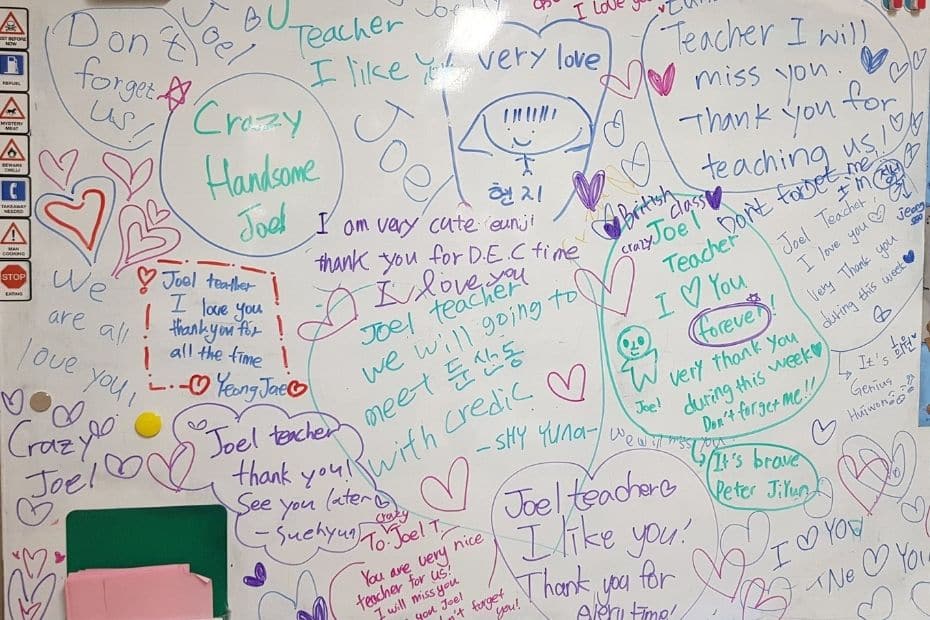 Don't
forget
us!
Joel
BU
Teacher
I like
Joel
I love you
very love
현지
Teacher I will
miss you.
Thank you for
teaching us!
Don't forget me
I'm
Crazy
Handsome
Joel
Joe
I am very cute eunji
thank you for D.E.C time
I love you
Joel teacher
we will going to
meet 둔산동
with credic
-SHY YUNA-
British
class
crazy
Joel
Teacher
I ♡ You
forever!
very thank you
during this week♥
Don't forget me!!
Joel
It's brave
Peter JiYun
Joel Teacher
I love you ♡
Very Thank you
during this week
Jeong
It's
Genius
Huiwon
REFUEL
MYSTERY
MEAT
BEWARE
CHILLI
TAKEAWAY
NEEDED
MAN
COOKING
STOP
EATING
We
are all
love you,
Joel teacher
I love you
thank you for
all the time
YeongJae
Crazy
Joel
Joel teacher
thank you!
See you later
- Suehyun
crazy
To. Joel T
You are very nice
teacher for us!
I will miss you
you Joel
don't forget
you!
we will miss you
Joel teacher
I like you!
Thank you for
every time!
I ♡ YOU
We ♡ You